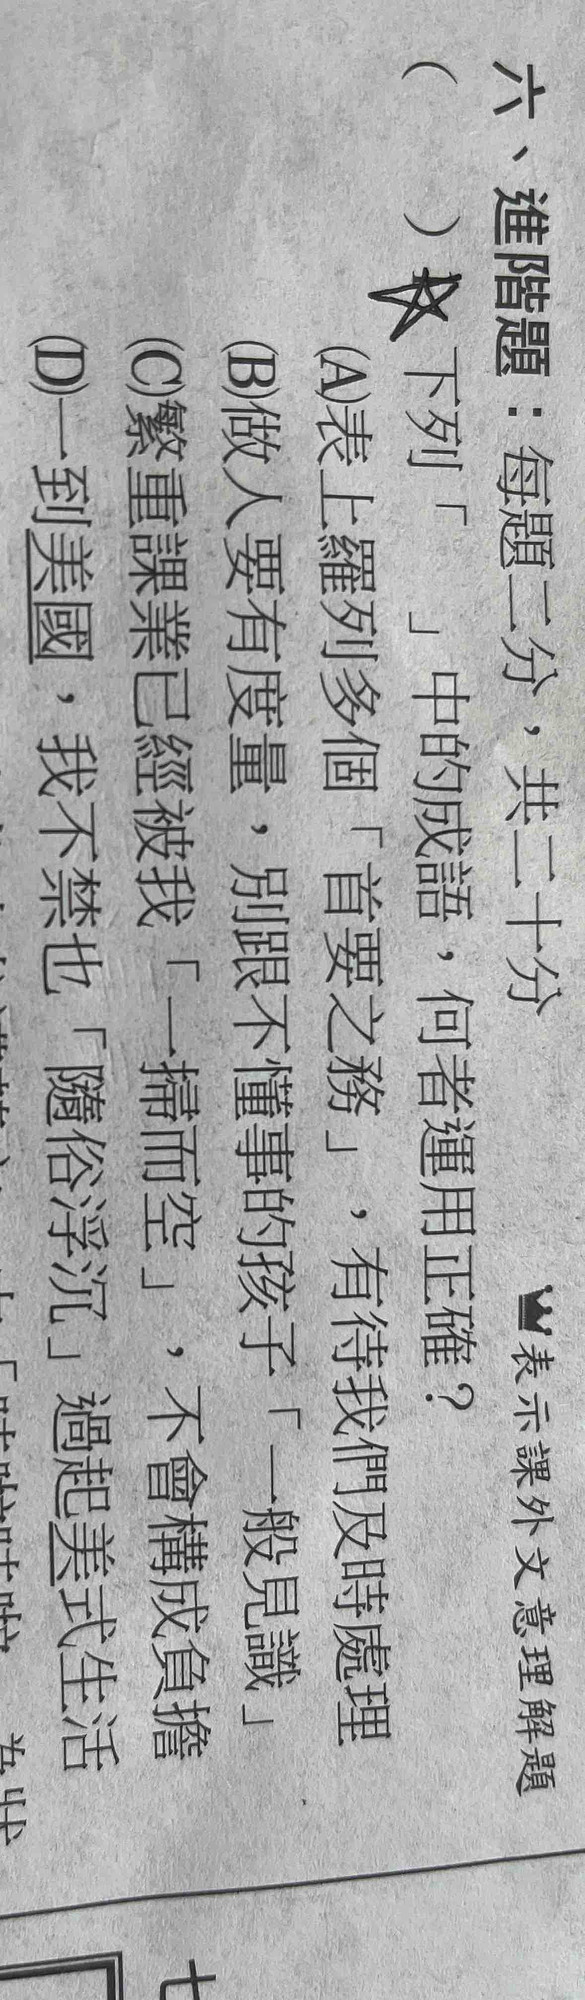 六、進階題：每題二分，共二十分　表示課外文意理解題
（　）下列「　」中的成語，何者運用正確？
(A)表上羅列多個「首要之務」，有待我們及時處理
(B)做人要有度量，別跟不懂事的孩子「一般見識」
(C)繁重課業已經被我「一掃而空」，不會構成負擔
(D)一到美國，我不禁也「隨俗浮沉」過起美式生活
七